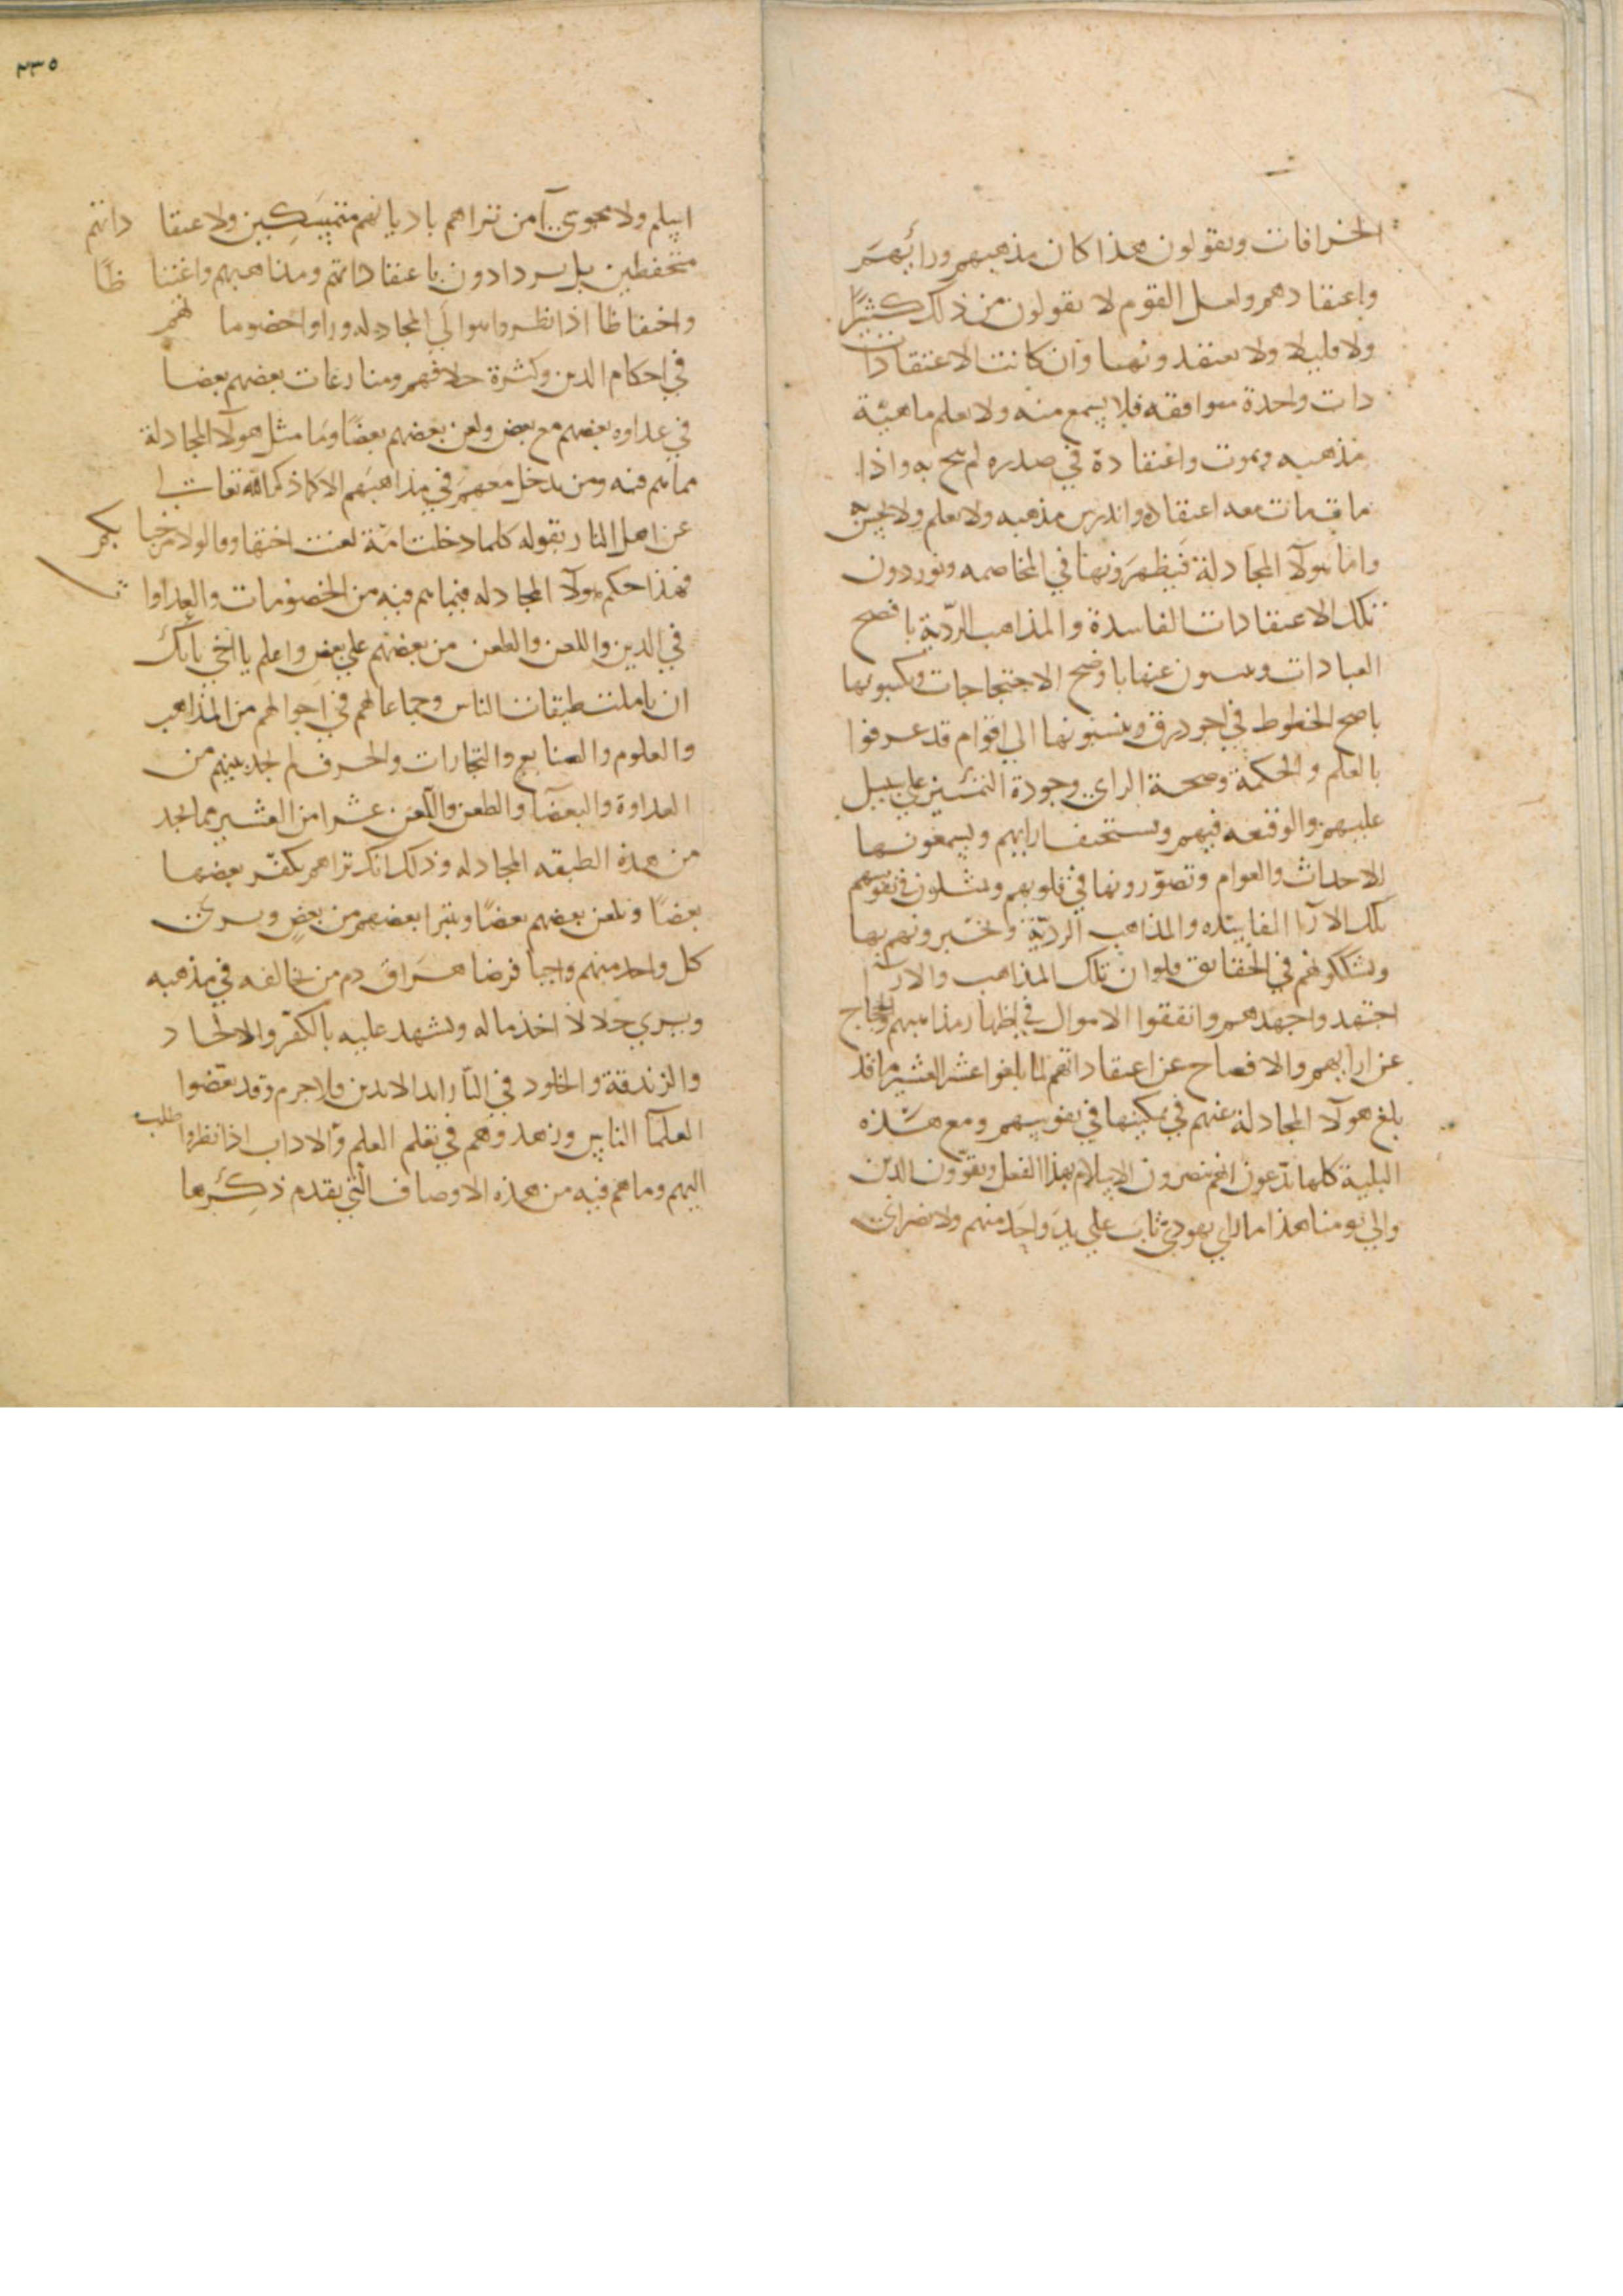 الخرافات ويقولون هذا كان مذهبهم ورأيهم
واعتقادهم ولعل القوم لا يقولون من ذلك كثيرًا
ولا قليلا ولا يعتقدونها وان كانت الاعتقادات
ذات واحدة موافقه فلا يسمع منه ولا يعلم ماهية
مذهبه ويموت واعتقاده في صدره لم يبح به واذا
مات مات معه اعتقاده واندرس مذهبه ولا يعلم ولا يحس به
واما هولآ المجادلة فيظهرونها في المخاصمه ويوردون
تلك الاعتقادات الفاسدة والمذاهب الرديّة بافصح
العبارات ويبينون عنها باوضح الاحتجاجات ويكتبونها
باصح الخطوط في اجود ورق وينسبونها الي اقوام قد عرفوا
بالعلم والحكمة وصحة الراي وجودة التمييز علي سبيل
عليهم والوقيعه فيهم ويستخف بارايهم ويسمعونها
للاحداث والعوام وتصوّرونها في قلوبهم ويمثلون في نفوسهم
تلك الارآ الفاسده والمذاهب الرديّة ويخبرونهم بها
ويشككونهم في الحقائق ولو ان تلك المذاهب والارا
اجتهد واجهدهم وانفقوا الاموال في اظهار مذاهبهم والحجاج
عن ارايهم والافصاح عن اعتقاداتهم لما بلغوا عشر العشير ما قد
بلغ هولآ المجادلة عنهم في تمكينها في نفوسهم ومع هذه
البلية كلها يدّعون انهم ينصرون الاسلام بهذا الفعل ويقوّون الدين
والي يومنا هذا ما راي يهودي تاب علي يد واحد منهم ولا نصراني
٢٣٥
اسلم ولا مجوي آمن تراهم باديانهم متمسكين ولاعتقاداتهم
متحفظين بل يزدادون باعتقاداتهم ومذاهبهم واغتناظًا
واحتفاظا اذا نظروا هوالي المجادله وراوا خصوماتهم
في احكام الدين وكثرة خلافهم ومنازعات بعضهم بعضا
في عداوه بعضهم مع بعض ولعن بعضهم بعضًا وما مثل هولآ المجادلة
مما هم فيه ومن يدخل معهم في مذاهبهم الا كما ذكر الله تعالى
عن اهل النار بقوله كلما دخلت امّة لعنت اختها وقالوا لا مرحبا بكم
فهذا حكم هولآ المجادله فيما هم فيه من الخصومات والعداوات
في الدين واللعن والطعن من بعضهم علي بعض واعلم يا اخي بانك
ان تاملت طبقات الناس وجماعاتهم في احوالهم من المذاهب
والعلوم والصنايع والتجارات والحرف لم تجد بينهم من
العداوة والبغضآ والطعن واللعن عشرا من العشير مما تجد
من هذه الطبقه المجادله وذلك انك تراهم يكفّر بعضها
بعضًا ويلعن بعضهم بعضًا ويتبرا بعضهم من بعضٍ ويرى
كل واحد منهم واجبا فرضا هراق دم من خالفه في مذهبه
ويري حلالا اخذ ماله ويشهد عليه بالكفر والالحاد
والزندقة والخلود في النار ابد الابدين فلا جرم وقد بغّضوا
العلمآ الناس وزهدوهم في تعلم العلم والاداب اذا نظروا طلب
اليهم وما هم فيه من هذه الاوصاف التي يقدم ذكرها